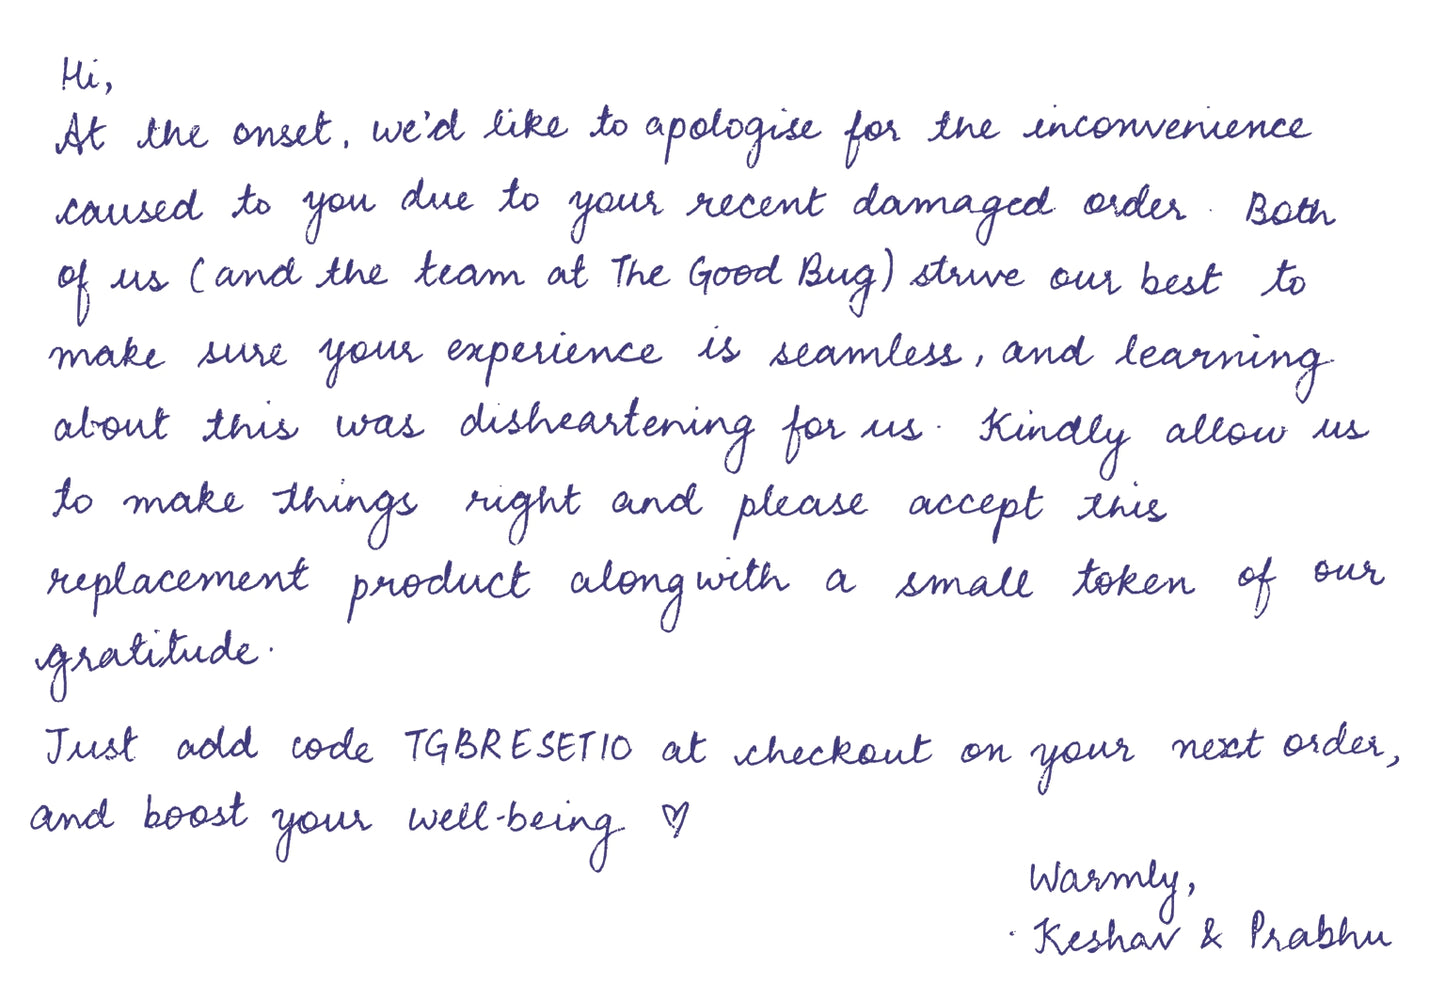 Hi,
At the onset, we'd like to apologise for the inconvenience
caused to you due to your recent damaged order. Both
of us (and the team at The Good Bug) strive our best to
make sure your experience is seamless, and learning
about this was disheartening for us. Kindly allow us
to make things right and please accept this
replacement product alongwith a small token of our
gratitude.
Just add code TGBRESET10 at checkout on your next order,
and boost your well-being ♡
Warmly,
Keshav & Prabhu